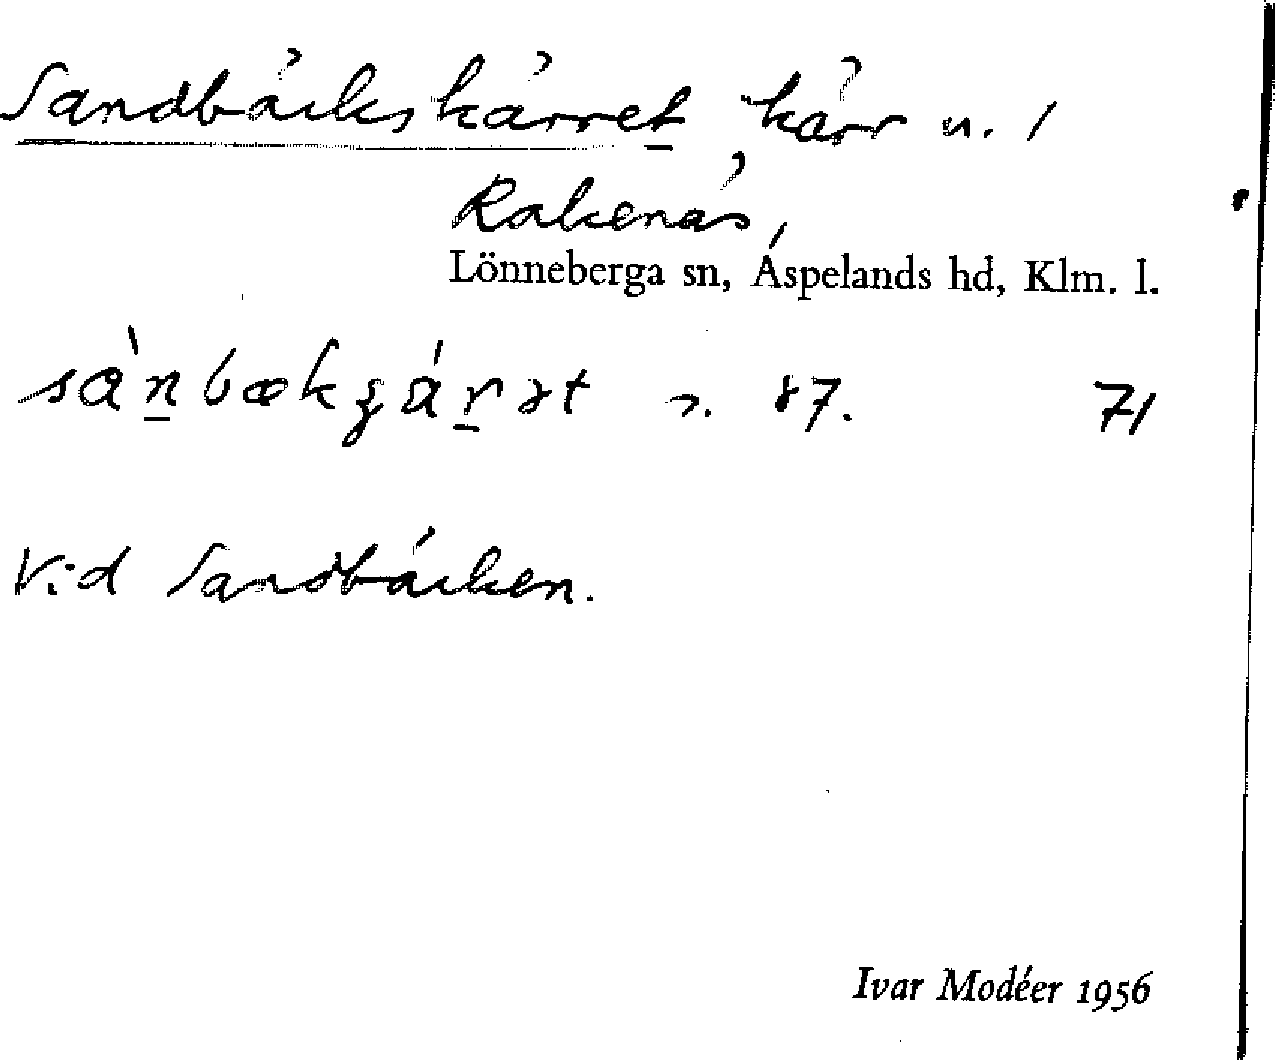 Sandbäckskärret kärr n. /
Rakenäs,
Lönneberga sn, Áspelands hd, Klm. l.
87. 71
Vid Sandbäcken.
Ivar Modéer 1956